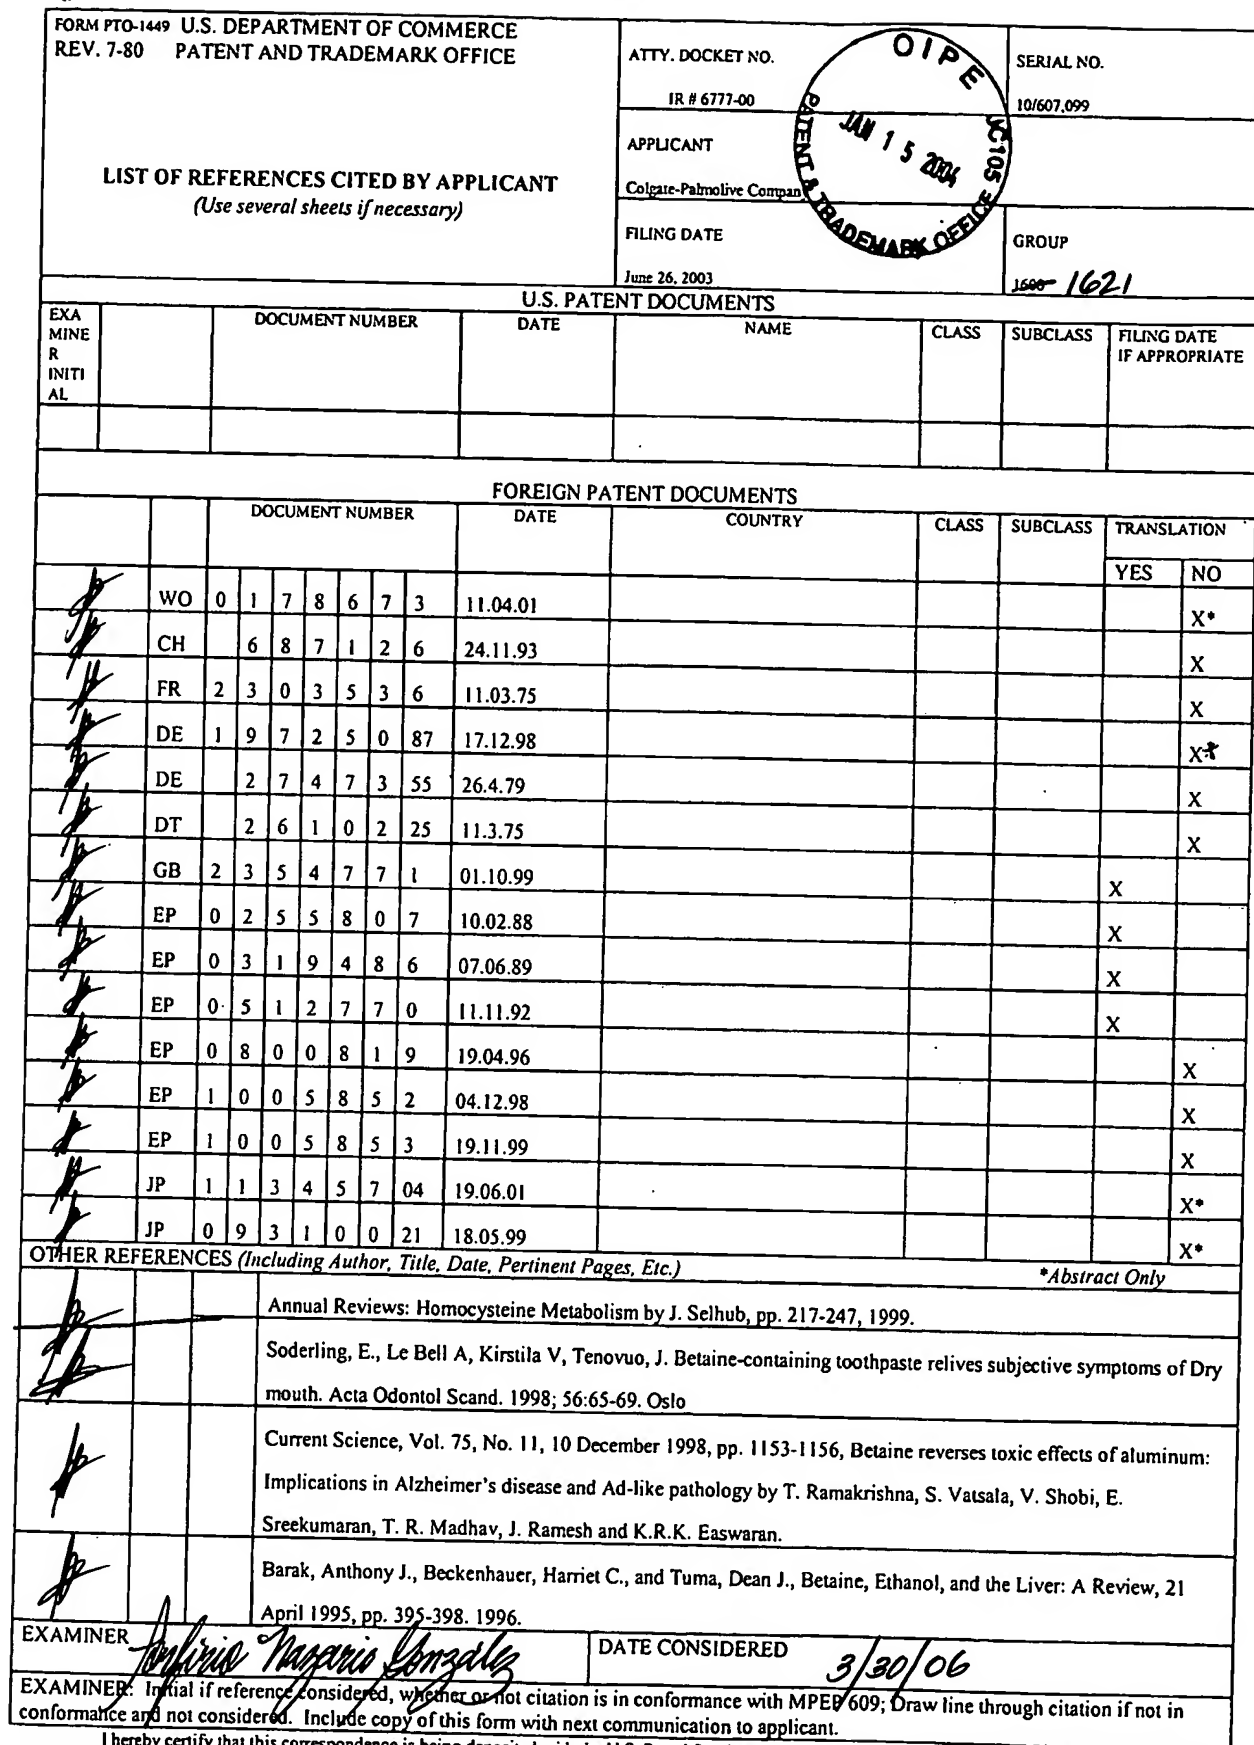 FORM PTO-1449 U.S. DEPARTMENT OF COMMERCE
REV. 7-80 PATENT AND TRADEMARK OFFICE
LIST OF REFERENCES CITED BY APPLICANT
(Use several sheets if necessary)
ATTY. DOCKET NO.
IR # 6777-00
SERIAL NO.
10/607,099
APPLICANT
Colgate-Palmolive Compan
FILING DATE
June 26, 2003
GROUP
1600 1621
OIPE JC105
JAN 15 2004
PATENT & TRADEMARK OFFICE
U.S. PATENT DOCUMENTS
EXA
MINE
R
INITI
AL
DOCUMENT NUMBER DATE NAME CLASS SUBCLASS FILING DATE
IF APPROPRIATE
FOREIGN PATENT DOCUMENTS
DOCUMENT NUMBER DATE COUNTRY CLASS SUBCLASS TRANSLATION
YES NO
WO 0 1 7 8 6 7 3 11.04.01 X*
CH 6 8 7 1 2 6 24.11.93 X
FR 2 3 0 3 5 3 6 11.03.75 X
DE 1 9 7 2 5 0 87 17.12.98 X*
DE 2 7 4 7 3 55 26.4.79 X
DT 2 6 1 0 2 25 11.3.75 X
GB 2 3 5 4 7 7 1 01.10.99 X
EP 0 2 5 5 8 0 7 10.02.88 X
EP 0 3 1 9 4 8 6 07.06.89 X
EP 0 5 1 2 7 7 0 11.11.92 X
EP 0 8 0 0 8 1 9 19.04.96 X
EP 1 0 0 5 8 5 2 04.12.98 X
EP 1 0 0 5 8 5 3 19.11.99 X
JP 1 1 3 4 5 7 04 19.06.01 X*
JP 0 9 3 1 0 0 21 18.05.99 X*
OTHER REFERENCES (Including Author, Title, Date, Pertinent Pages, Etc.) *Abstract Only
Annual Reviews: Homocysteine Metabolism by J. Selhub, pp. 217-247, 1999.
Soderling, E., Le Bell A, Kirstila V, Tenovuo, J. Betaine-containing toothpaste relives subjective symptoms of Dry
mouth. Acta Odontol Scand. 1998; 56:65-69. Oslo
Current Science, Vol. 75, No. 11, 10 December 1998, pp. 1153-1156, Betaine reverses toxic effects of aluminum:
Implications in Alzheimer's disease and Ad-like pathology by T. Ramakrishna, S. Vatsala, V. Shobi, E.
Sreekumaran, T. R. Madhav, J. Ramesh and K.R.K. Easwaran.
Barak, Anthony J., Beckenhauer, Harriet C., and Tuma, Dean J., Betaine, Ethanol, and the Liver: A Review, 21
April 1995, pp. 395-398. 1996.
EXAMINER Porfirio Nazario Gonzalez DATE CONSIDERED 3/30/06
EXAMINER: Initial if reference considered, whether or not citation is in conformance with MPEP 609; Draw line through citation if not in
conformance and not considered. Include copy of this form with next communication to applicant.
I hereby certify that this correspondence is being